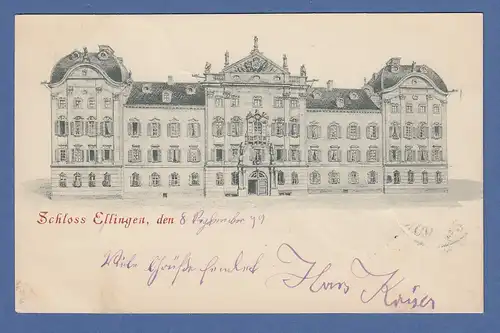 Schloss Ellingen, den 8 September 99
Viele Grüße sendet Hans Kaiser